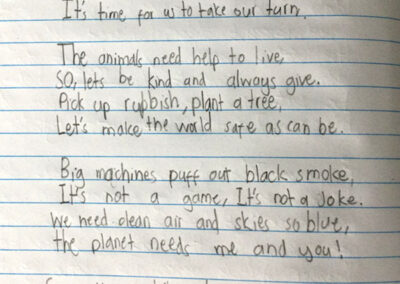 It's time for us to take our turn.
The animals need help to live,
SO, lets be kind and always give.
Pick up rubbish, plant a tree,
Let's make the world safe as can be.
Big machines puff out black smoke,
It's not a game, It's not a Joke.
We need clean air and skies so blue,
the planet needs me and you!